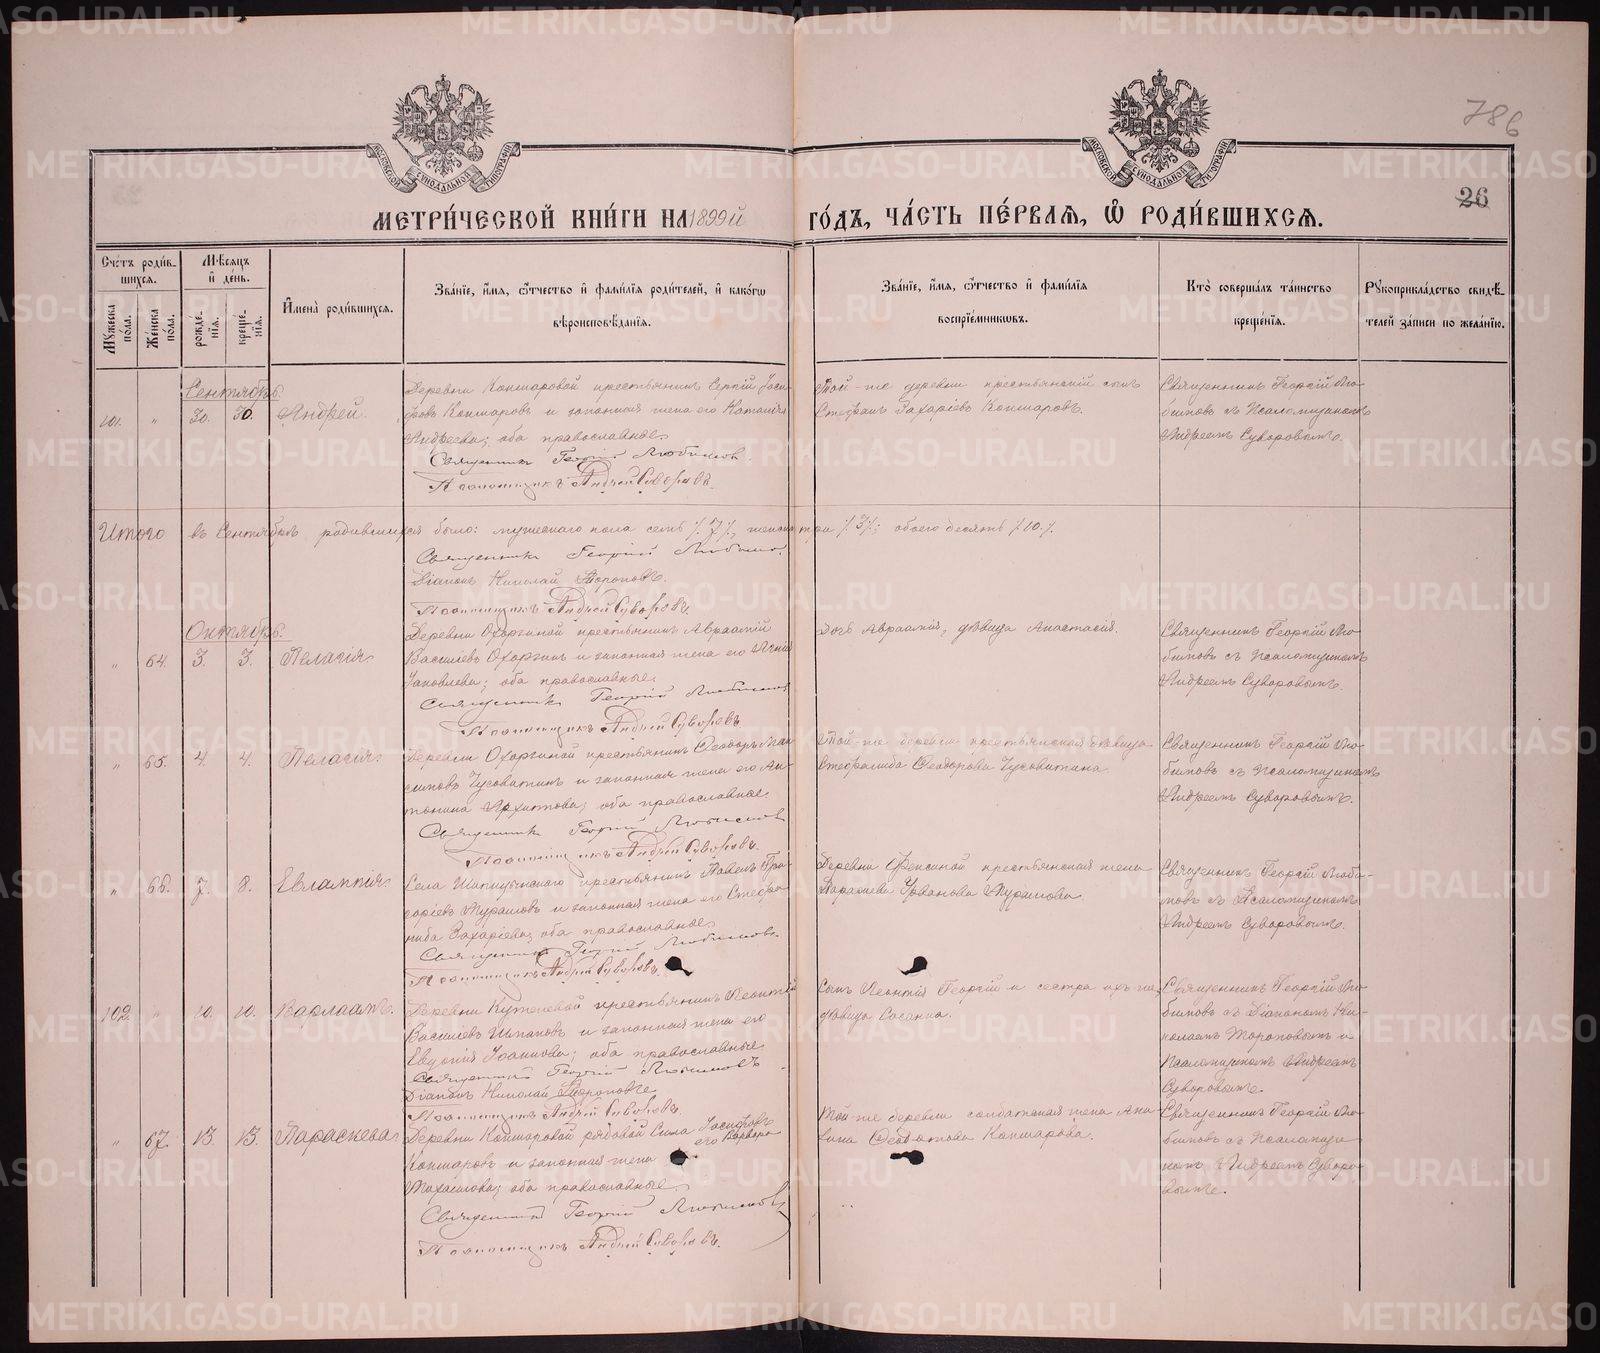 786
26
МОСКОВСКОЙ СѴНОДАЛЬНОЙ ТИПОГРАФІИ
МОСКОВСКОЙ СѴНОДАЛЬНОЙ ТИПОГРАФІИ
МЕТРИ́ЧЕСКОЙ КНИ́ГИ НА 1899й ГО́ДЪ, ЧА́СТЬ ПЕ́РВАЯ, Ѽ РОДИ́ВШИХСЯ.
Сче́тъ роди́в-
шихся.
Мѣ́сяцъ
и҆ де́нь.
Му́жеска
по́ла.
Же́нска
по́ла.
рожде́-
нїя.
креще́-
нїя.
И҆мена̀ роди́вшихся.
Зва́нїе, и҆́мя, ѻ҆́тчество и҆ фами́лїя роди́телей, и҆ како́гѡ
вѣроисповѣ́данїя.
Зва́нїе, и҆́мя, ѻ҆́тчество и҆ фами́лїя
воспрїе́мниковъ.
Кто̀ соверша́лъ та́инство
креще́нїя.
Рꙋкоприкла́дство свидѣ́-
телей за́писи по жела́нїю.
Сентябрь.
101. " 30. 30. Андрей.
Деревни Кокшаровой крестьянинъ Сергій Іоси-
фовъ Кокшаровъ и законная жена его Наталія
Андреева; оба православные.
Священникъ Георгій Любимовъ.
Псаломщикъ Андрей Суворовъ.
Той-же деревни крестьянскій сынъ
Стефанъ Захаріевъ Кокшаровъ.
Священникъ Георгій Лю-
бимовъ съ Псаломщикомъ
Андреемъ Суворовымъ.
Итого въ Сентябрѣ родившихся было: мужескаго пола семь /.7/., женска три /.3/.; обоего десять /.10./.
Священникъ Георгій Любимовъ.
Діаконъ Николай Тороповъ.
Псаломщикъ Андрей Суворовъ.
Октябрь.
" 64. 3. 3. Пелагія.
Деревни Охоргиной крестьянинъ Авраамій
Василіевъ Охоргинъ и законная жена его
Іаковлева; оба православные.
Священникъ Георгій Любимовъ
Псаломщикъ Андрей Суворовъ
Дочь Авраамія, дѣвица Анастасія.
Священникъ Георгій Лю-
бимовъ съ Псаломщикомъ
Андреемъ Суворовымъ.
" 65. 4. 4. Пелагія.
Деревни Охоргиной крестьянинъ Ѳеодоръ Мак-
симовъ Чусовитинъ и законная жена его Ан-
тонина Архипова; оба православные.
Священникъ Георгій Любимовъ
Псаломщикъ Андрей Суворовъ.
Той-же деревни крестьянская дѣвица
Стефанида Ѳеодорова Чусовитина.
Священникъ Георгій Лю-
бимовъ съ Псаломщикомъ
Андреемъ Суворовымъ.
" 66. 7. 8. Евлампія.
Села крестьянинъ Павелъ Гри-
горіевъ Мурашовъ и законная жена его Стефа-
нида Захаріева; оба православные.
Священникъ Георгій Любимовъ.
Псаломщикъ Андрей Суворовъ.
Деревни крестьянская жена
Параскева Мурашова.
Священникъ Георгій Люби-
мовъ съ Псаломщикомъ
Андреемъ Суворовымъ.
102. " 10. 10. Варлаамъ.
Деревни крестьянинъ Леонтій
Василіевъ и законная жена его
Евдокія Іоаннова; оба православные.
Священникъ Георгій Любимовъ
Діаконъ Николай Тороповъ.
Псаломщикъ Андрей Суворовъ.
Сынъ Леонтія Георгій и сестра
дѣвица
Священникъ Георгій Лю-
бимовъ съ Діакономъ Ни-
колаемъ Тороповымъ и
Псаломщикомъ Андреемъ
Суворовымъ.
" 67. 13. 13. Параскева.
Деревни Кокшаровой рядовой Сила Іосифовъ
Кокшаровъ и законная жена его Варвара
оба православные.
Священникъ Георгій Любимовъ
Псаломщикъ Андрей Суворовъ.
Той-же деревни солдатская жена
Кокшарова.
Священникъ Георгій Лю-
бимовъ съ Псаломщи-
комъ Андреемъ Суворо-
вымъ.
METRIKI.GASO-URAL.RU